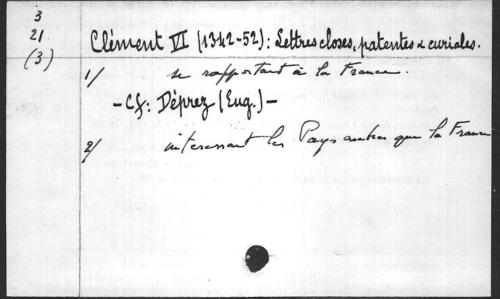 3
21
(3)
Clément VI (1342-52): Lettres closes, patentes & curiales.
1/ se rapportant à la France.
- Cf: Déprez (Eug.) -
2/ intéressant les Pays autres que la France